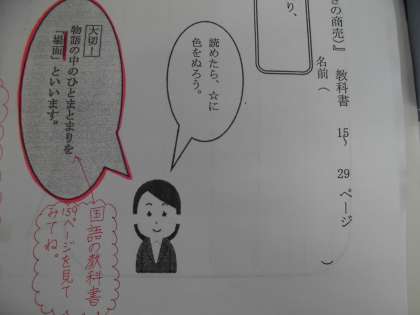 きの商売)』 教科書 15～29ページ
名前( )
り、
読めたら、☆に
色をぬろう。
大切!
物語の中のひとまとまりを
「場面」といいます。
国語の教科書
159ページを見て
みてね。